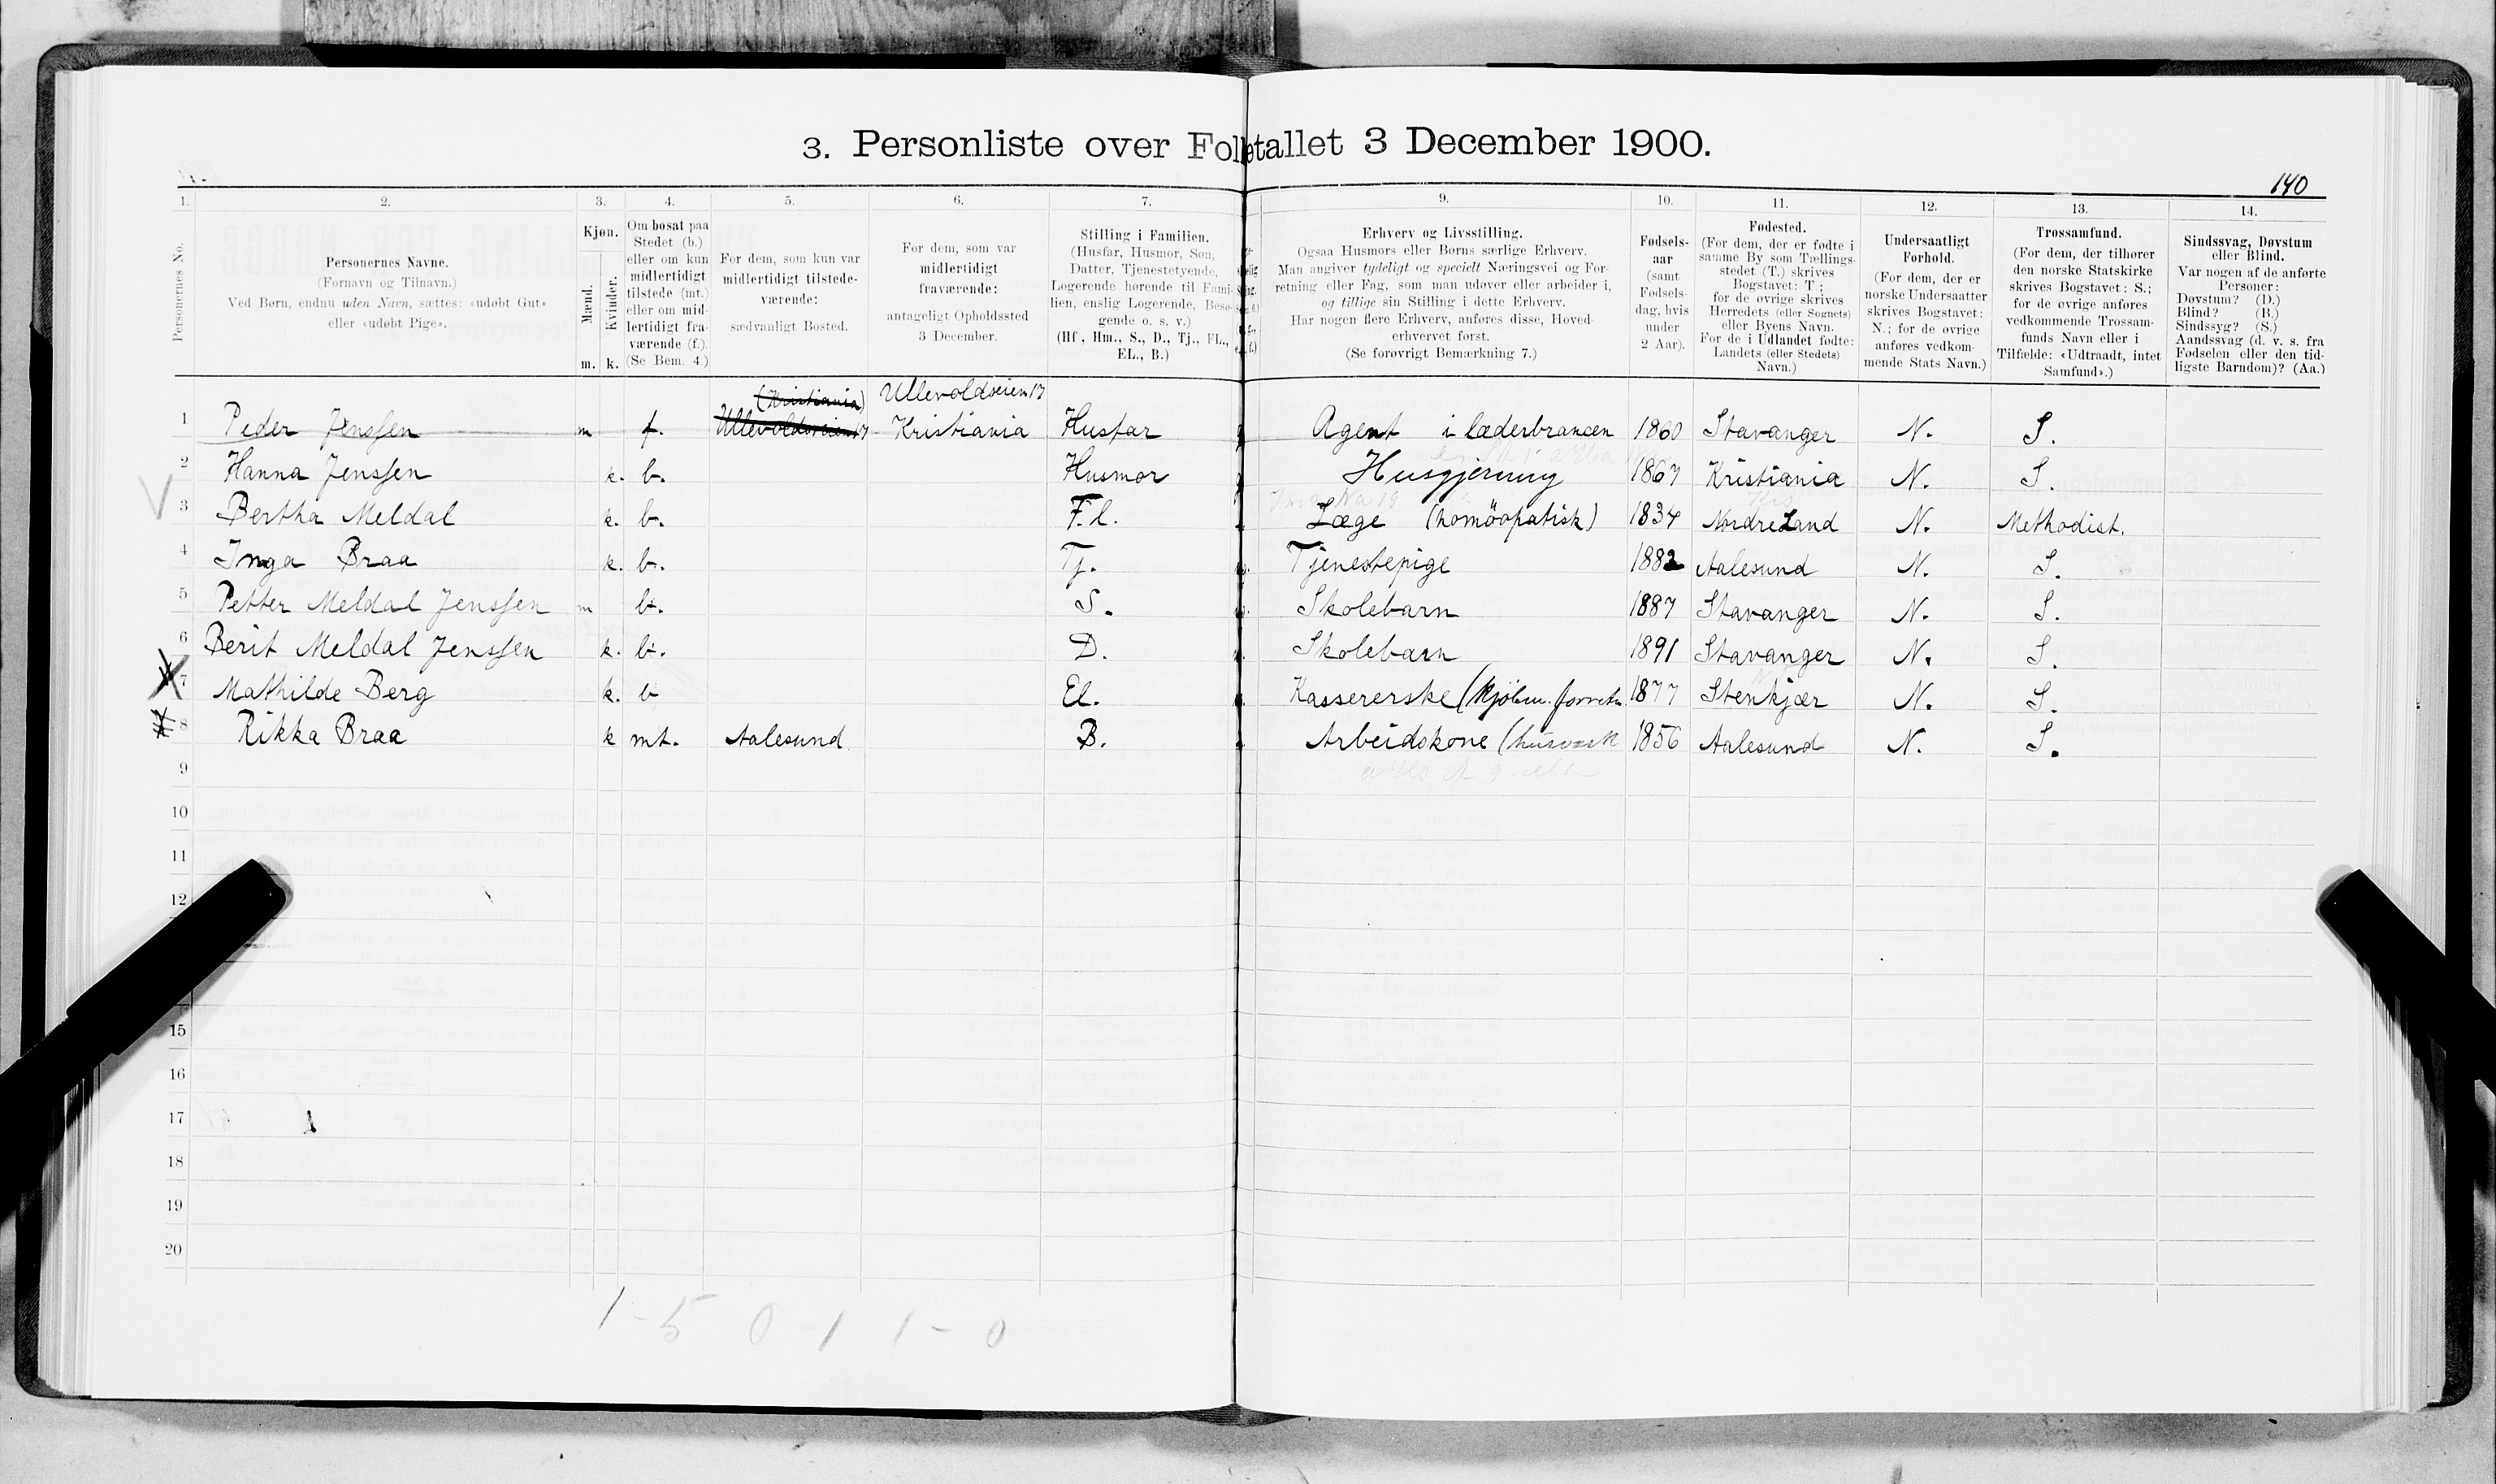 3. Personliste over Folketallet 3 December 1900.
140
1. 2. 3. 4. 5. 6. 7. 9. 10. 11. 12. 13. 14.
Personernes No.
Personernes Navne.
(Fornavn og Tilnavn.)
Ved Børn, endnu uden Navn, sættes: «udøbt Gut»
eller «udøbt Pige».
Kjøn.
Mænd.
Kvinder.
m. k.
Om bosat paa
Stedet (b.)
eller om kun
midlertidigt
tilstede (mt.)
eller om mid-
lertidigt fra-
værende (f.).
(Se Bem. 4.)
For dem, som kun var
midlertidigt tilstede-
værende:
sædvanligt Bosted.
For dem, som var
midlertidigt
fraværende:
antageligt Opholdssted
3 December.
Stilling i Familien.
(Husfar, Husmor, Søn,
Datter, Tjenestetyende,
Logerende hørende til Fami-
lien, enslig Logerende, Besø-
gende o. s. v.)
(Hf, Hm., S., D., Tj., FL.,
EL., B.)
Erhverv og Livsstilling.
Ogsaa Husmors eller Børns særlige Erhverv.
Man angiver tydeligt og specielt Næringsvei og For-
retning eller Fag, som man udøver eller arbeider i,
og tillige sin Stilling i dette Erhverv.
Har nogen flere Erhverv, anføres disse, Hoved-
erhvervet først.
(Se forøvrigt Bemærkning 7.)
Fødsels-
aar
(samt
Fødsels-
dag, hvis
under
2 Aar).
Fødested.
(For dem, der er fødte i
samme By som Tællings-
stedet (T.) skrives
Bogstavet: T.;
for de øvrige skrives
Herredets (eller Sognets)
eller Byens Navn.
For de i Udlandet fødte:
Landets (eller Stedets)
Navn.)
Undersaatligt
Forhold.
(For dem, der er
norske Undersaatter
skrives Bogstavet:
N.; for de øvrige
anføres vedkom-
mende Stats Navn.)
Trossamfund.
(For dem, der tilhører
den norske Statskirke
skrives Bogstavet: S.;
for de øvrige anføres
vedkommende Trossam-
funds Navn eller i
Tilfælde: «Udtraadt, intet
Samfund».)
Sindssvag, Døvstum
eller Blind.
Var nogen af de anførte
Personer:
Døvstum? (D.)
Blind? (B.)
Sindssyg? (S.)
Aandssvag (d. v. s. fra
Fødselen eller den tid-
ligste Barndom)? (Aa.)
(Kristiania) Ullevoldsveien 17
1 Peder Jenssen m f. Ullevoldsveien 17 Kristiania Husfar Agent i læderbrancen 1860 Stavanger N. S.
2 Hanna Jenssen k. b. Husmor Husgjerning 1867 Kristiania N. S.
3 Bertha Meldal k. b. F.l. Læge (homöopatisk) 1834 Nordre Land N. Methodist.
4 Inga Braa k. b. Tj. Tjenestepige 1882 Aalesund N. S.
5 Petter Meldal Jenssen m b. S. Skolebarn 1887 Stavanger N. S.
6 Berit Meldal Jenssen k. b. D. Skolebarn 1891 Stavanger N. S.
7 Mathilde Berg k. b El. Kassererske 1877 Stenkjær N. S.
8 Rikka Braa k mt. Aalesund B. Arbeidskone (husvask 1856 Aalesund N. S.
9
10
11
12
15
16
17
18
19
20
1-5 0-1 1-0